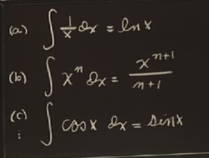 (a) ∫ 1/x dx = ln x
(b) ∫ xⁿ dx = xⁿ⁺¹/n+1
(c) ∫ cos x dx = sin x
⋮